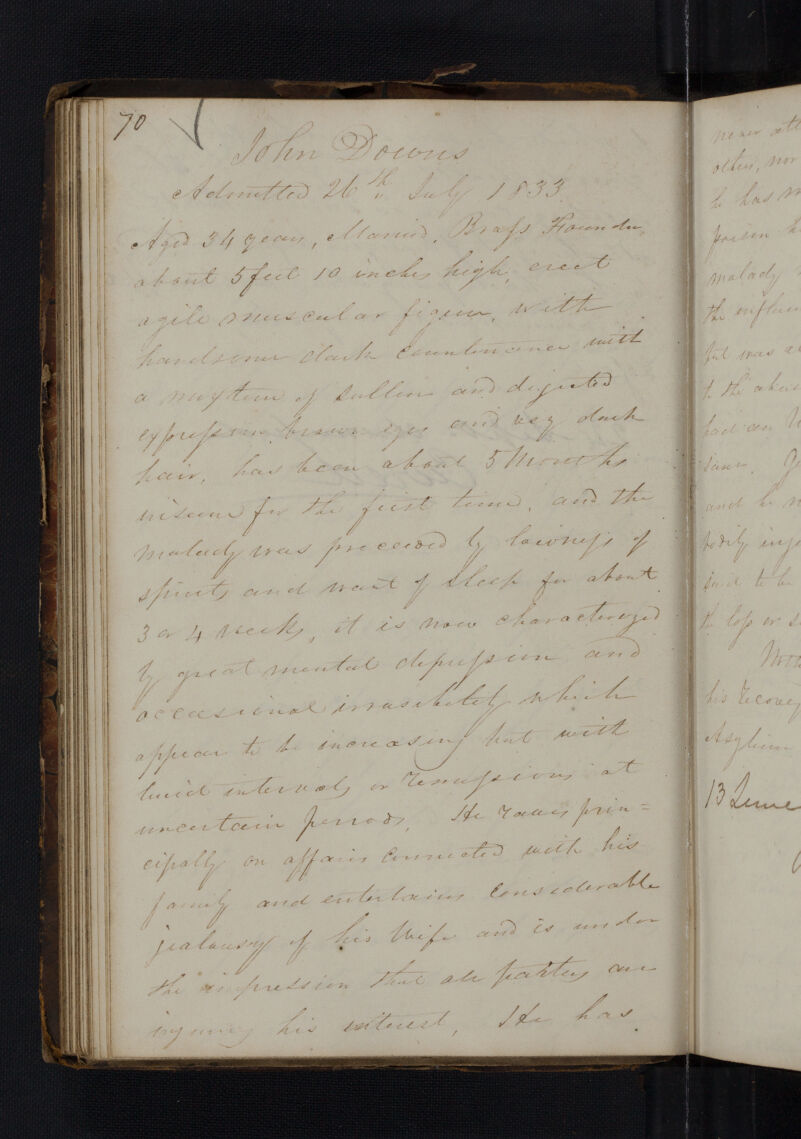 70
John Downs
Admitted 26th July 1833
Aged 34 years, Married, Brass Founder,
about 5 feet 10 inches high, erect
agile muscular figure, with
handsome dark countenance with
a mixture of sullen and dejected
expression, brown eyes and very dark
hair, has been about 5 Months
insane for the first time, and the
malady was preceeded by lowness of
spirits and want of sleep for about
3 or 4 weeks, it is now characterized
by great mental depression and
occasional irrascibility which
appear to be increasing but with
lucid intervals or remissions at
uncertain periods. He raves prin=
cipally on affairs connected with his
family and entertains considerable
jealousy of his Wife and is under
the impression that all parties are
injuring his interest, He has
never
other, nor
he has
poison
malady
the
but was
to the
had an

and he
bodily
said to be
the loss or

his recovery
Asylum
13 June